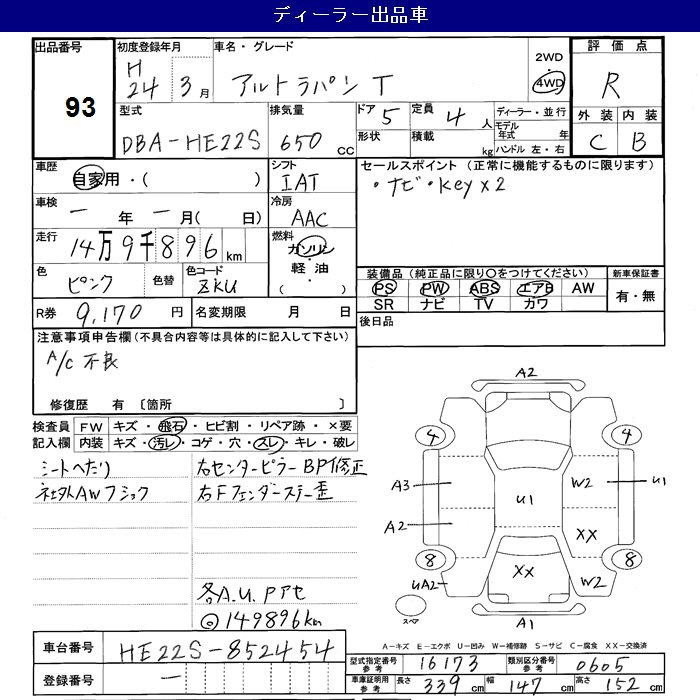 ディーラー出品車
出品番号 初度登録年月 車名・グレード 評価点
93 H24 3月 アルトラパン T 2WD 4WD R
型式 排気量 ドア 5 定員 4人 ディーラー・並行 外装 内装
DBA-HE22S 650cc 形状 積載 kg モデル年式 年 ハンドル 左・右 C B
車歴 自家用・( ) シフト IAT セールスポイント (正常に機能するものに限ります)
車検 ー年ー月( 日) 冷房 AAC ・ナビ・Key×2
走行 14万9千896km 燃料 ガソリン・軽油・( )
色 ピンク 色替 色コード ZKU 装備品(純正品に限り○をつけてください) 新車保証書
PS PW ABS エアB AW 有・無
SR ナビ TV カワ
R券 9,170円 名変期限 月 日 後日品
注意事項申告欄(不具合内容等は具体的に記入して下さい)
A/C 不良
修復歴 有 〔箇所 〕
検査員記入欄 FW キズ・飛石・ヒビ割・リペア跡・×要
内装 キズ・汚レ・コゲ・穴・スレ・キレ・破レ
シートへたり 右センターピラーBP修正
社外AWフジック 右Fフェンダーステー歪
各A.U.Pアセ
◎149896km
A2
4 4
A3 U1 W2 U1
A2 XX
8 8
UA2 XX W2
スペア A1
A-キズ E-エクボ U-凹み W-補修跡 S-サビ C-腐食 XX-交換済
車台番号 HE22S-852454
登録番号 ー
型式指定番号参考 16173 類別区分番号参考 0605
車庫証明用参考 長さ 339cm 幅 147cm 高さ 152cm